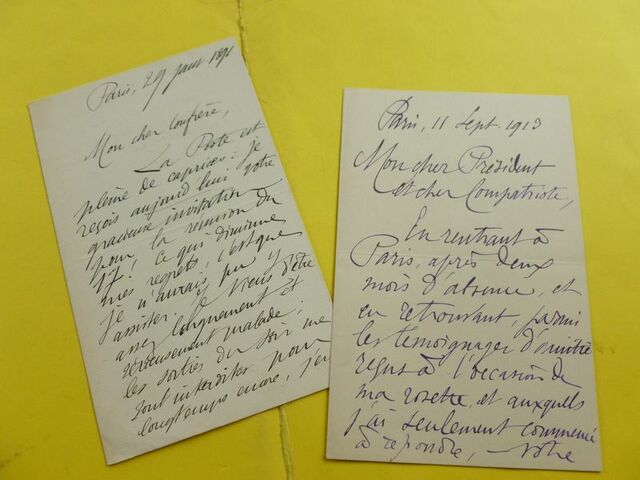 Paris, 29 janv 1891
Mon cher confrère,
La Poste est
pleine de caprices : je
reçois aujourd'hui votre
gracieuse invitation
pour la réunion du
17. Ce qui diminue
mes regrets, c'est que
je n'aurais pu y
assister. Je viens d'être
assez longuement et
sérieusement malade ;
les sorties du soir me
sont interdites pour
longtemps encore, j'en
Paris, 11 Sept. 1913
Mon cher Président
et cher Compatriote,
En rentrant à
Paris, après deux
mois d'absence, et
en retrouvant, parmi
les témoignages d'amitié
reçus à l'occasion de
ma rosette et auxquels
j'ai seulement commencé
à répondre, — votre